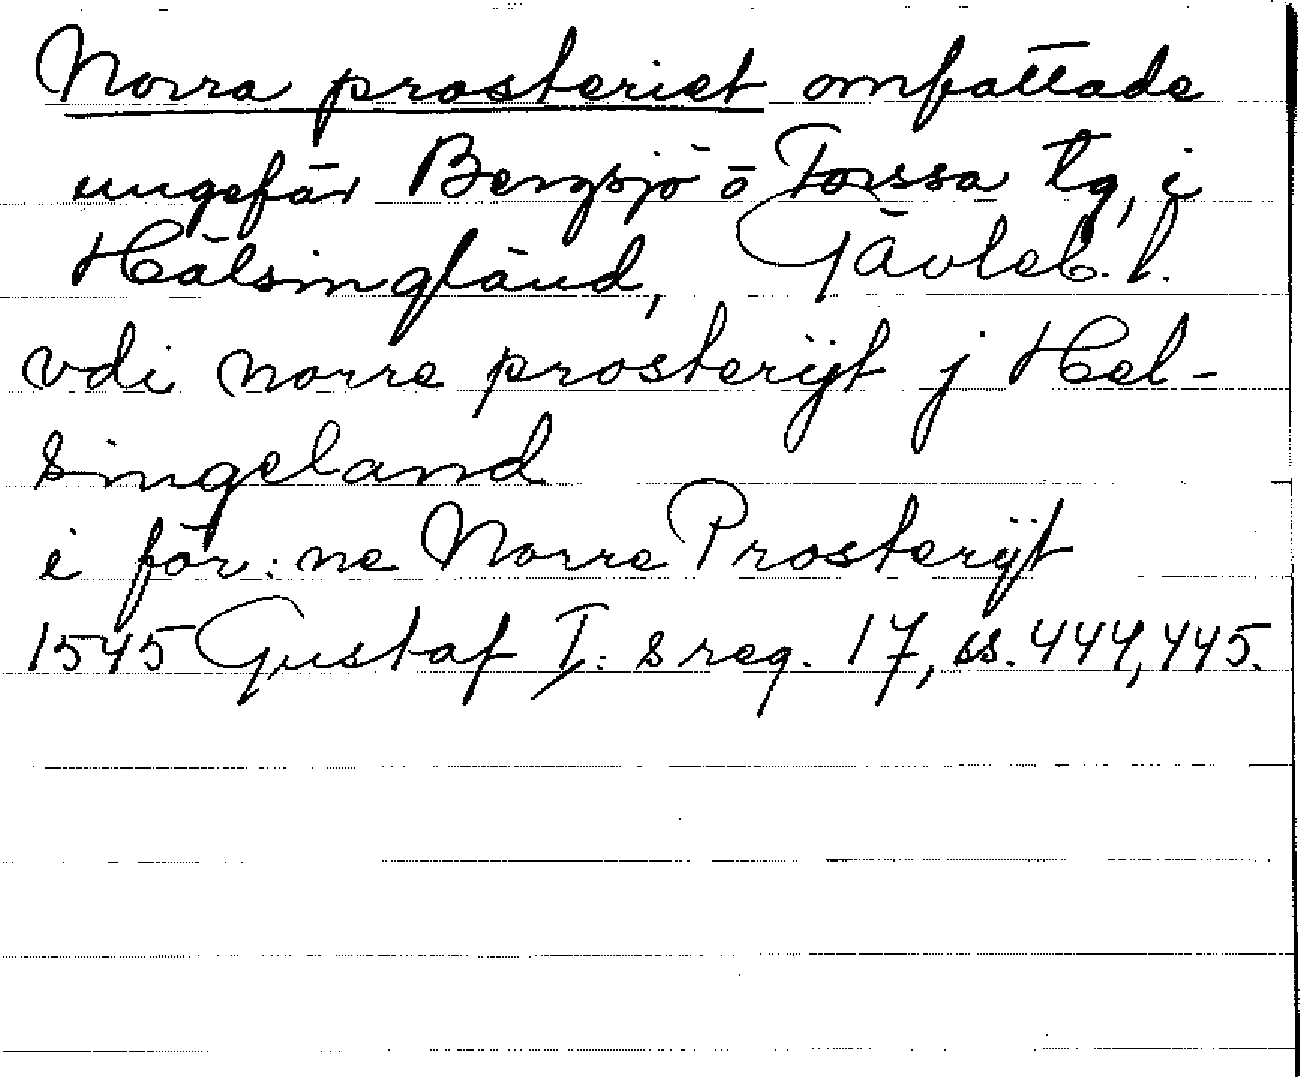 Norra prosteriet omfattade
ungefär Bergsjö o Forssa tg, i
Hälsingland, Gävleb. l.
vdi norre prosterijt j Hel-
singeland
i för:ne Norre Prosterijt
1545 Gustaf I:s reg. 17, ss. 444, 445.